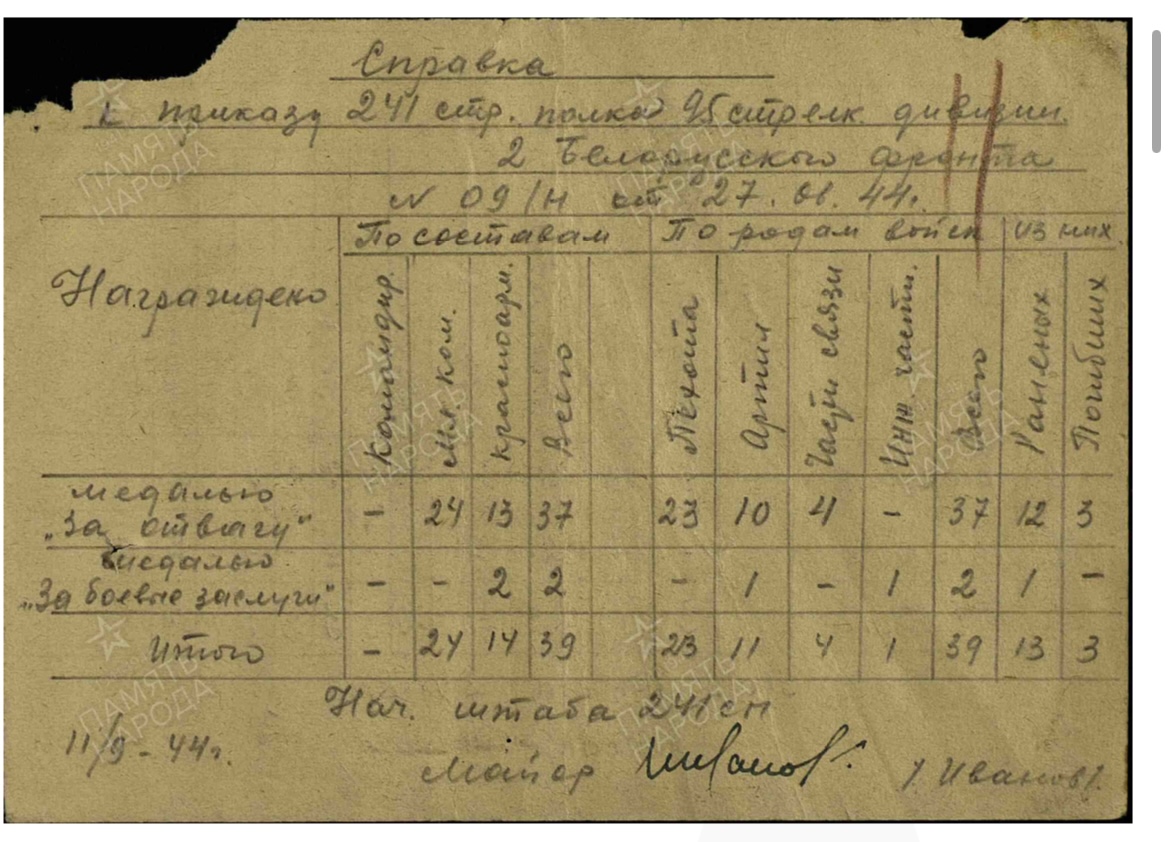 Справка
к приказу 241 стр. полка 95 стрелк. дивизии.
2 Белорусского фронта
N 09/н от 27. 08. 44.
Награждено
По составам
По родам войск
из них
Командир.
мл. ком.
красноарм.
Всего
Пехота
Артил
Части связи
Инж. части.
Всего
Раненых
Погибших
медалью
„За отвагу" - 24 13 37 23 10 4 - 37 12 3
медалью
„За боевые заслуги" - - 2 2 - 1 - 1 2 1 -
Итого - 24 14 39 23 11 4 1 39 13 3
Нач. штаба 241 сп
11/9-44г.
Майор
/Иванов/.
ПАМЯТЬ
НАРОДА
ПАМЯТЬ
НАРОДА
ПАМЯТЬ
НАРОДА
ПАМЯТЬ
НАРОДА
ПАМЯТЬ
НАРОДА
ПАМЯТЬ
НАРОДА